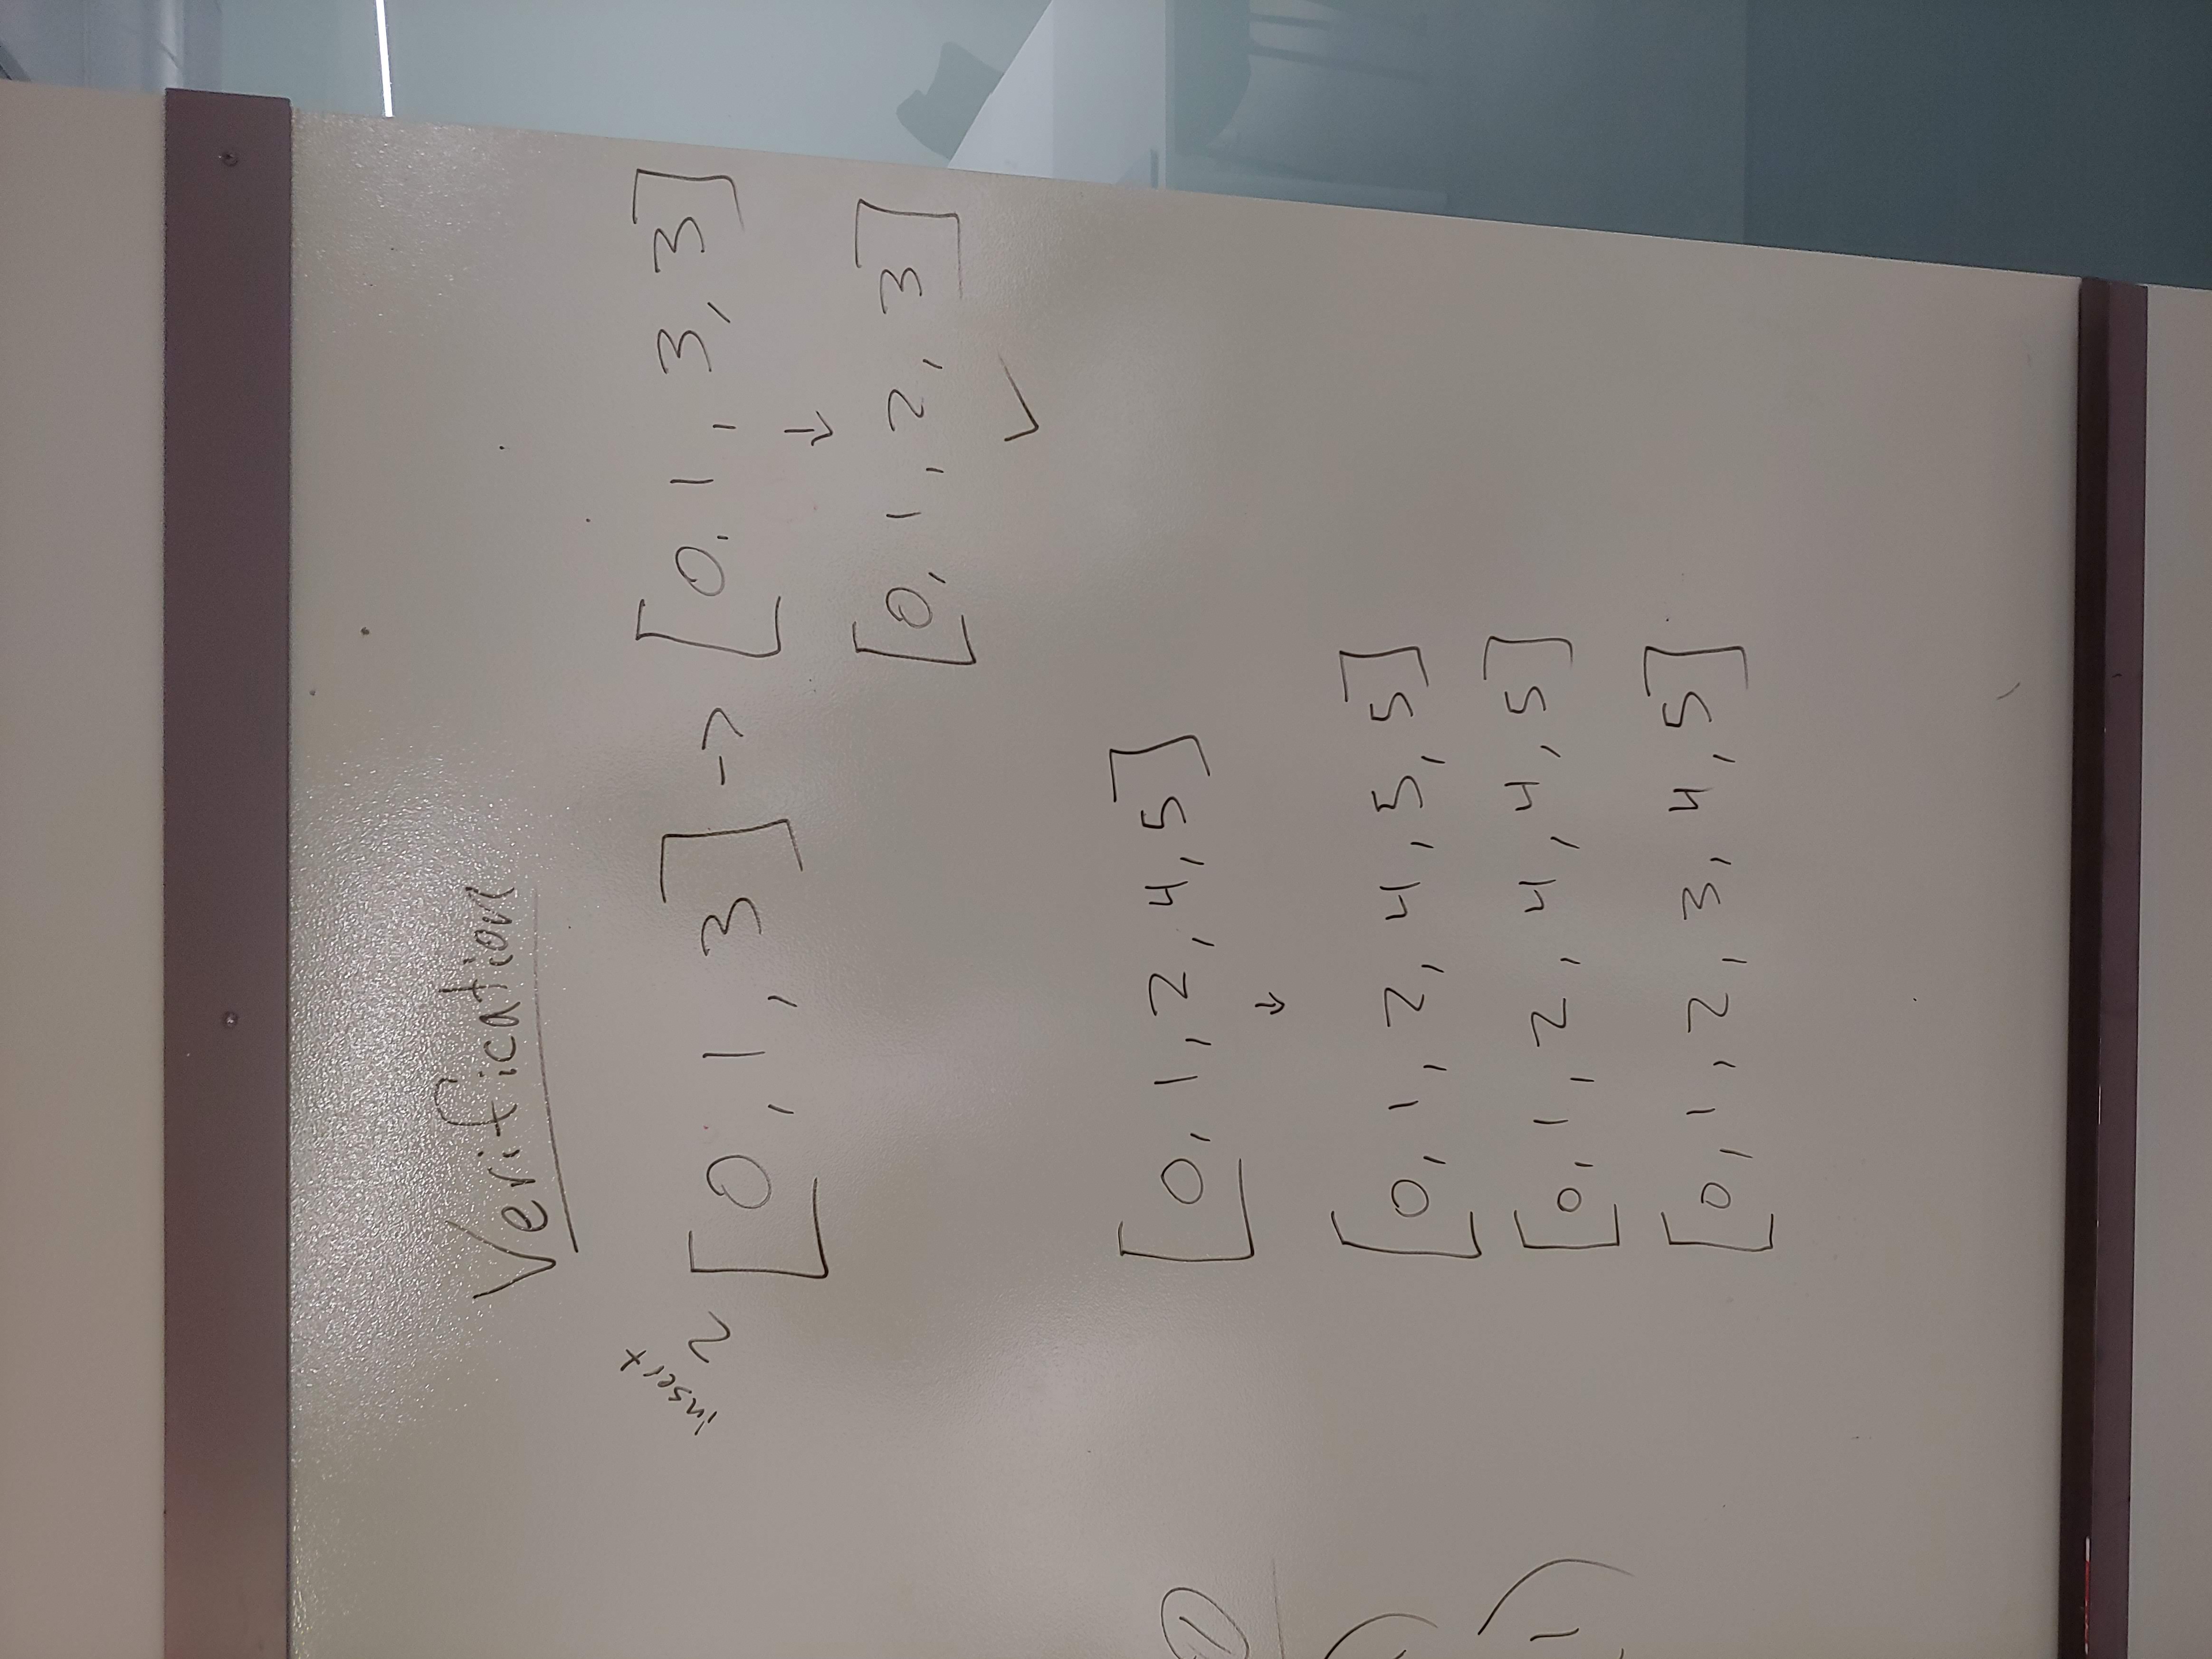 Verification
insert
2 [0, 1, 3] -> [0, 1, 3, 3]
↓
[0, 1, 2, 3]
✓
[0, 1, 2, 4, 5]
↓
[0, 1, 2, 4, 5, 5]
[0, 1, 2, 4, 4, 5]
[0, 1, 2, 3, 4, 5]
1)